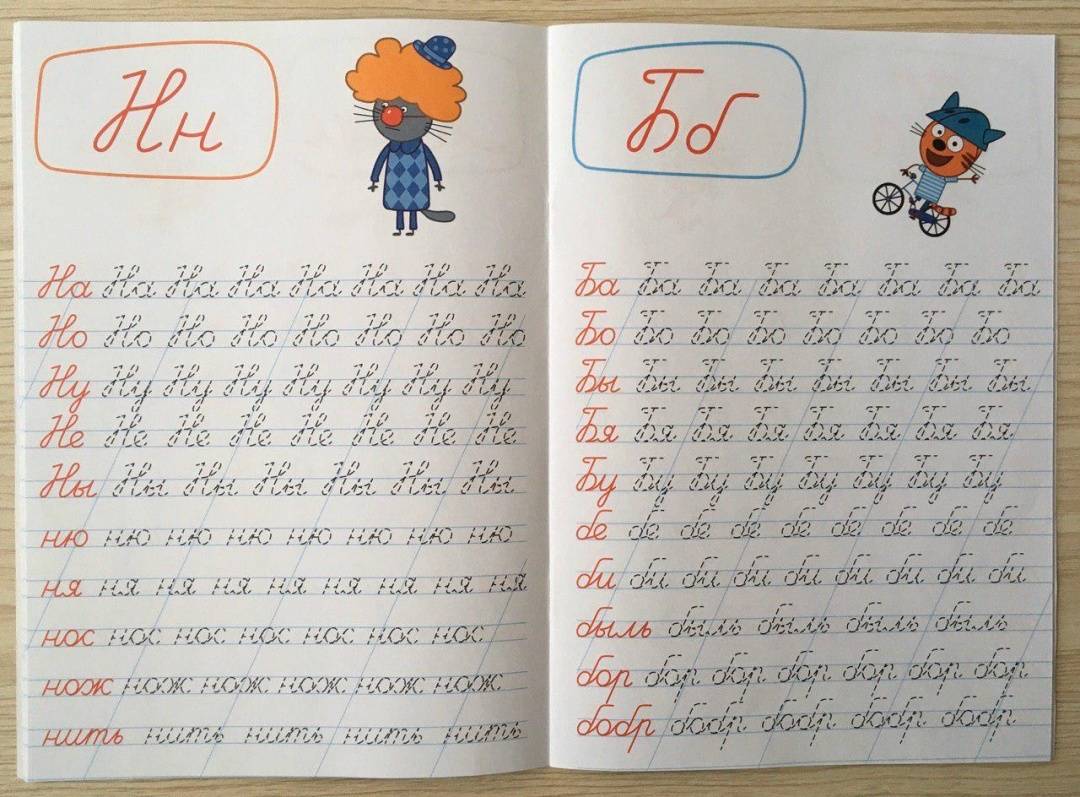 Нн
На На На На На На На На
Но Но Но Но Но Но Но Но
Ну Ну Ну Ну Ну Ну Ну Ну
Не Не Не Не Не Не Не Не
Ны Ны Ны Ны Ны Ны Ны
ню ню ню ню ню ню ню ню
ня ня ня ня ня ня ня ня ня
нос нос нос нос нос нос нос
нож нож нож нож нож нож
нить нить нить нить нить
Бб
Ба Ба Ба Ба Ба Ба Ба Ба
Бо Бо Бо Бо Бо Бо Бо Бо
Бы Бы Бы Бы Бы Бы Бы Бы
Бя Бя Бя Бя Бя Бя Бя Бя
Бу Бу Бу Бу Бу Бу Бу Бу
бе бе бе бе бе бе бе бе бе
би би би би би би би би би
быль быль быль быль быль
бор бор бор бор бор бор бор
бобр бобр бобр бобр бобр